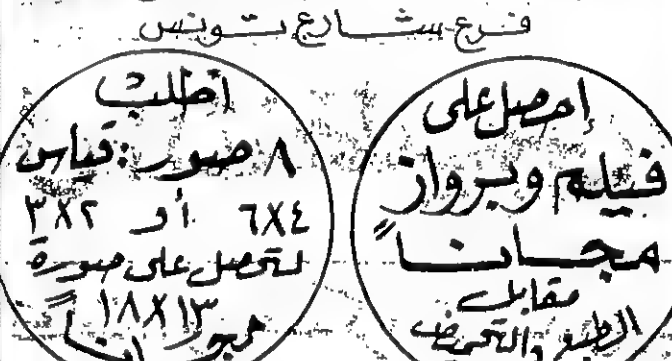 فرع شارع تونس
إحصل على
فيلم وبرواز
مجاناً
مقابل
الطبع والتحميض
أطلب
٨ صور: قياس
٦X٤ أو ٣X٢
لتحصل على صورة
١٨X١٣